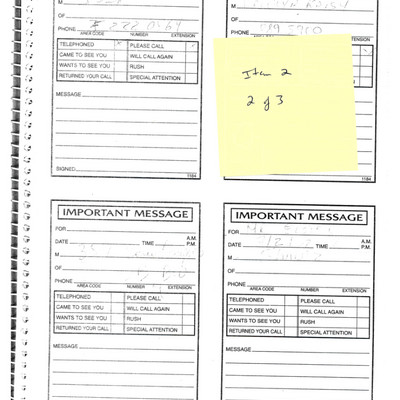 M
OF
PHONE
AREA CODE NUMBER EXTENSION
TELEPHONED PLEASE CALL
CAME TO SEE YOU WILL CALL AGAIN
WANTS TO SEE YOU RUSH
RETURNED YOUR CALL SPECIAL ATTENTION
MESSAGE
SIGNED
1184
Item 2
2 of 3
1184
IMPORTANT MESSAGE
FOR
A.M.
DATE TIME P.M.
M
OF
PHONE
AREA CODE NUMBER EXTENSION
TELEPHONED PLEASE CALL
CAME TO SEE YOU WILL CALL AGAIN
WANTS TO SEE YOU RUSH
RETURNED YOUR CALL SPECIAL ATTENTION
MESSAGE
IMPORTANT MESSAGE
FOR
A.M.
DATE TIME P.M.
M
OF
PHONE
AREA CODE NUMBER EXTENSION
TELEPHONED PLEASE CALL
CAME TO SEE YOU WILL CALL AGAIN
WANTS TO SEE YOU RUSH
RETURNED YOUR CALL SPECIAL ATTENTION
MESSAGE